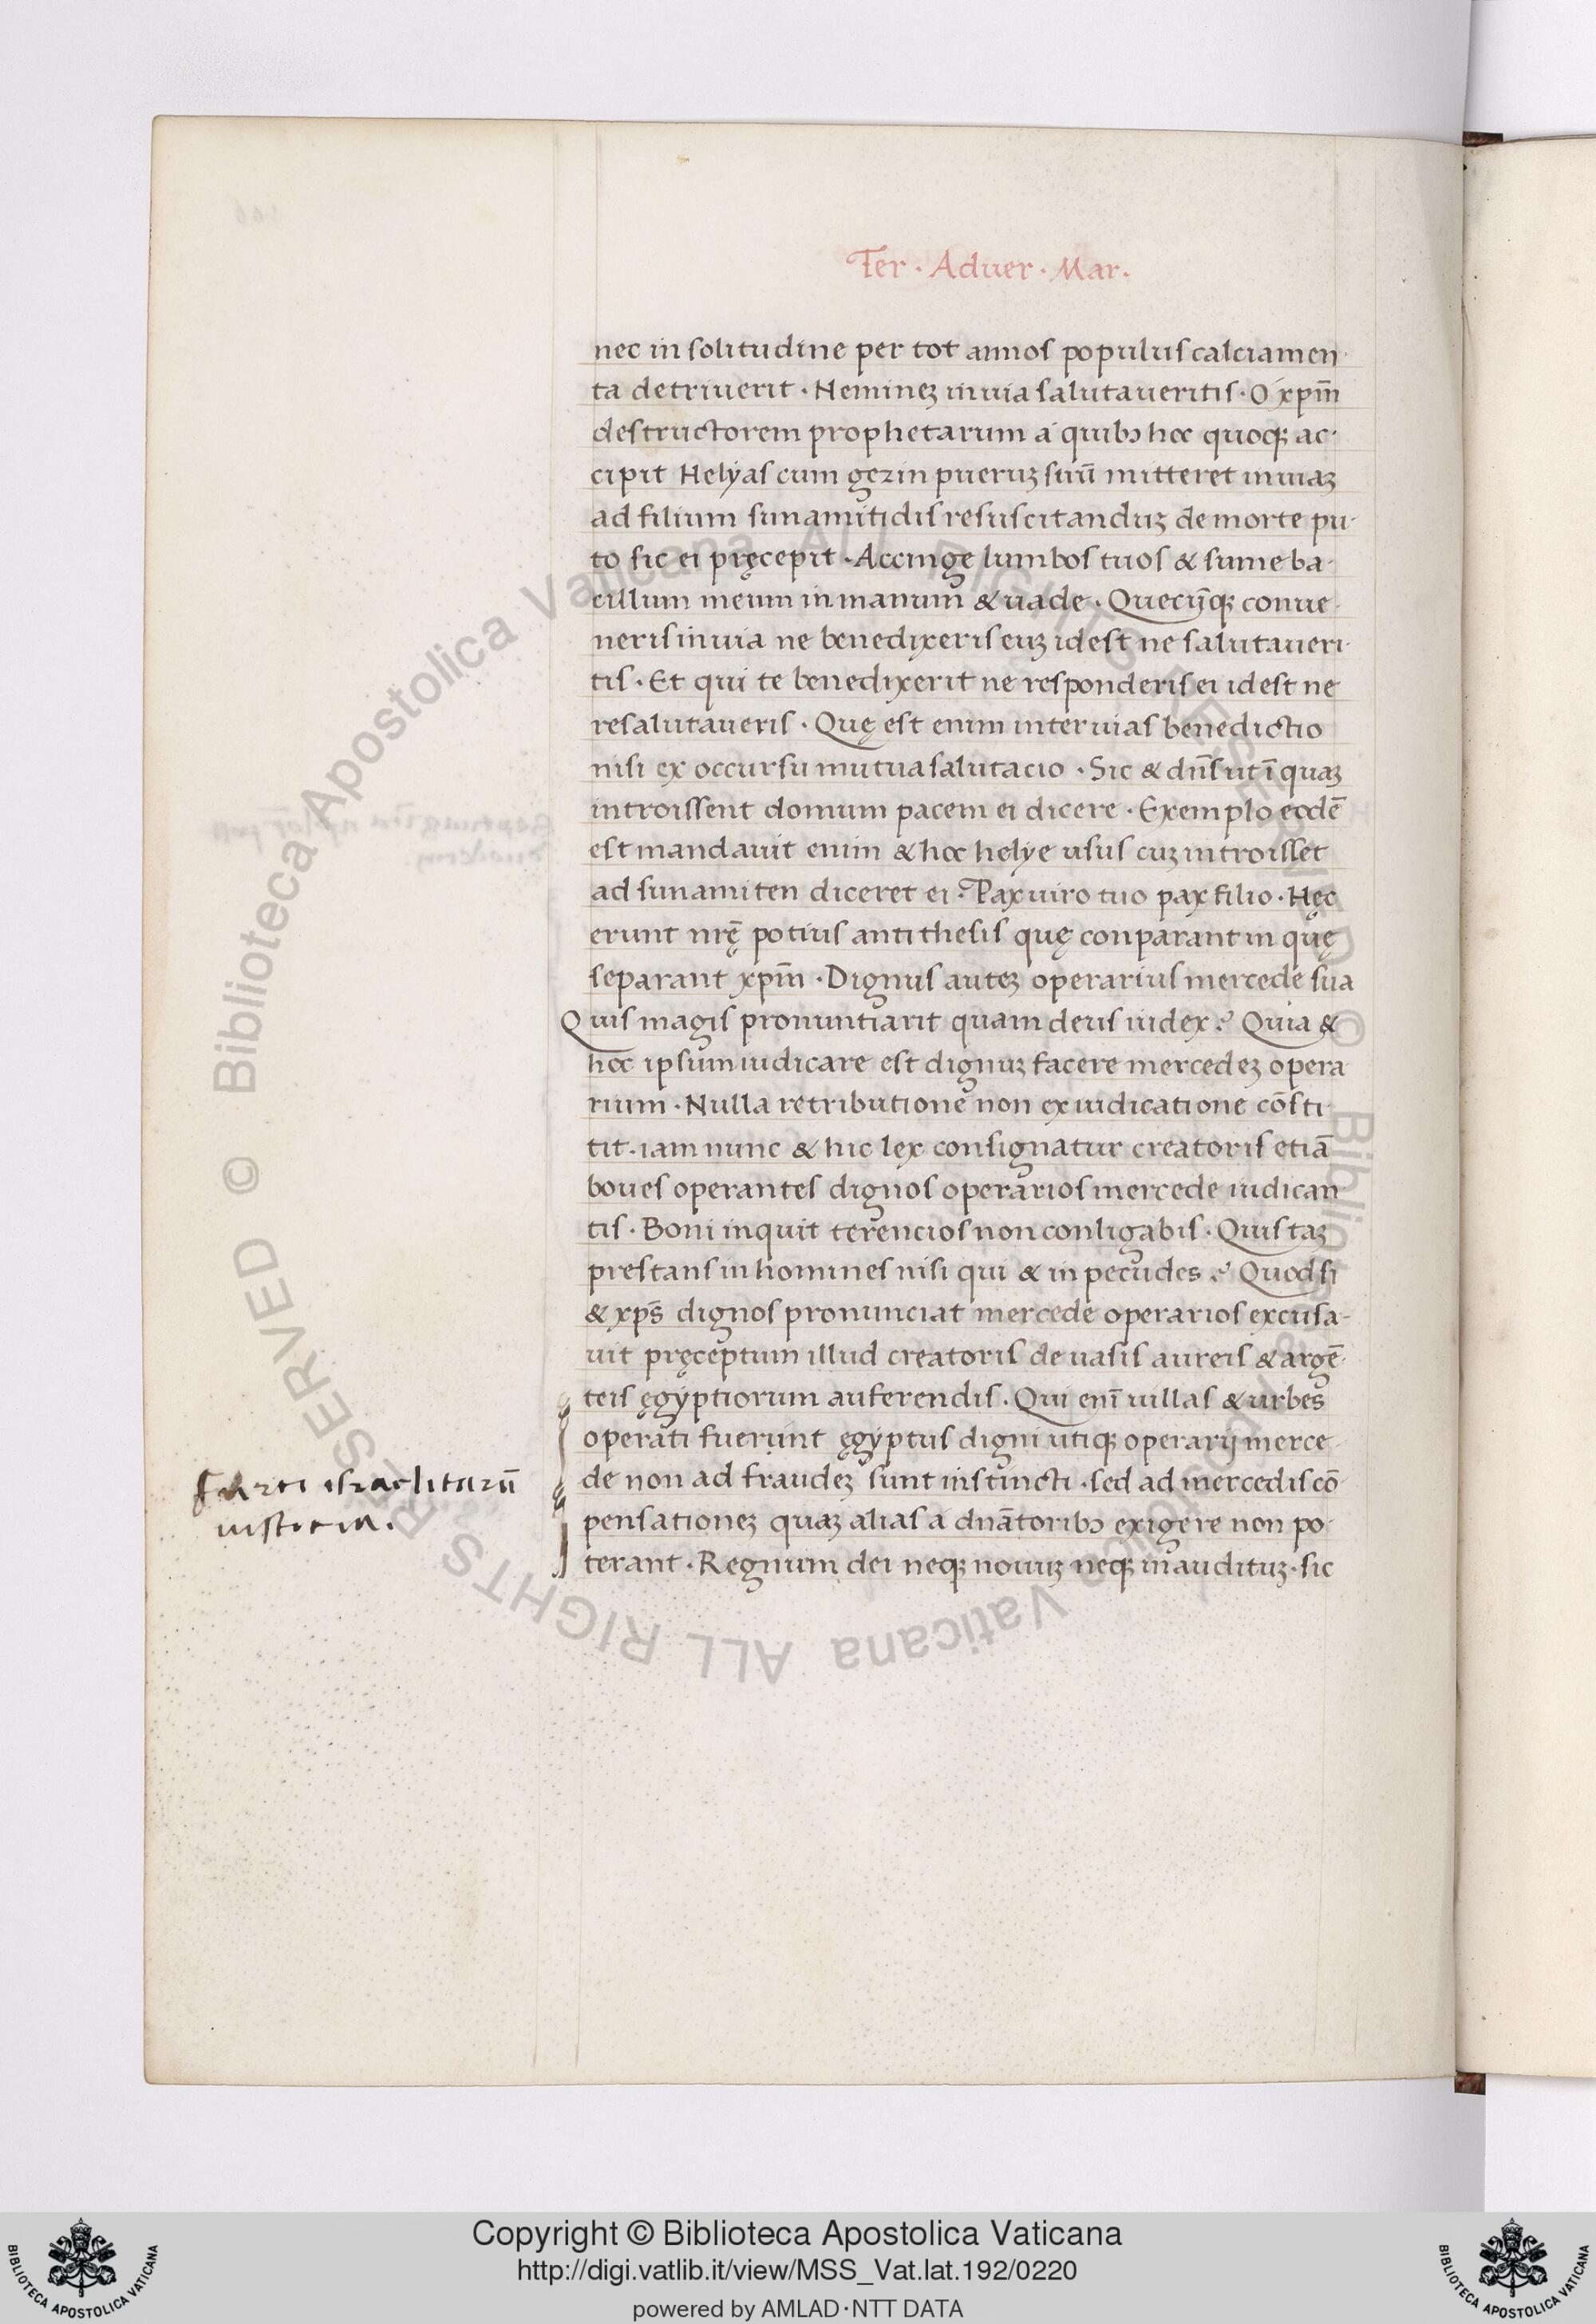 Ter · Aduer · Mar.
nec in solitudine per tot annos populus calciamen-
ta detriuerit · Nemineꝫ in uia salutaueritis · O xp̄m
destructorem prophetarum a quibꝰ hoc quoqꝫ ac-
cipit Helyas cum gezin pueruꝫ suū mitteret in uiaꝫ
ad filium sunamitidis resuscitanduꝫ de morte pu-
to sic ei pręcepit · Accinge lumbos tuos & sume ba-
cillum meum in manum & uade · Quecūqꝫ conue-
neris in uia ne benedixeris euꝫ id est ne salutaueri-
tis · Et qui te benedixerit ne responderis ei id est ne
resalutaueris · Quę est enim inter uias benedictio
nisi ex occursu mutua salutacio · Sic & dn̄s ut ī quaꝫ
introissent domum pacem ei dicere · Exemplo eodē
est mandauit enim & hoc helye usus cuꝫ introisset
ad sunamiten diceret ei · Pax uiro tuo pax filio · Hęc
erunt nr̄ę potius antithesis quę conparant in quę
separant xp̄m · Dignus auteꝫ operarius mercede sua
Quis magis pronuntiarit quam deus iudex ? Quia &
hoc ipsum iudicare est dignuꝫ facere mercedeꝫ opera
rium · Nulla retributione non ex iudicatione cōsti-
tit · iam nunc & hic lex consignatur creatoris etiā
boues operantes dignos operarios mercede iudican
tis · Boni inquit terencios non conligabis · Quis taꝫ
prestans in homines nisi qui & in pecudes ? Quod si
& xp̄s dignos pronunciat mercede operarios excusa-
uit pręceptum illud creatoris de uasis aureis & argē-
teis ęgyptiorum auferendis · Qui enī uillas & urbes
operati fuerunt ęgyptus digni utiqꝫ operarij merce-
de non ad fraudeꝫ sunt instincti · sed ad mercedis cō-
pensationeꝫ quaꝫ alias a dnātoribꝰ exigere non po-
terant · Regnum dei neqꝫ nouuꝫ neqꝫ inaudituꝫ · sic
furti israelitarū
iustitia.
© Biblioteca Apostolica Vaticana ALL RIGHTS RESERVED © Biblioteca Apostolica Vaticana ALL RIGHTS RESERVED
Copyright © Biblioteca Apostolica Vaticana
http://digi.vatlib.it/view/MSS_Vat.lat.192/0220
powered by AMLAD·NTT DATA
BIBLIOTECA APOSTOLICA VATICANA
BIBLIOTECA APOSTOLICA VATICANA